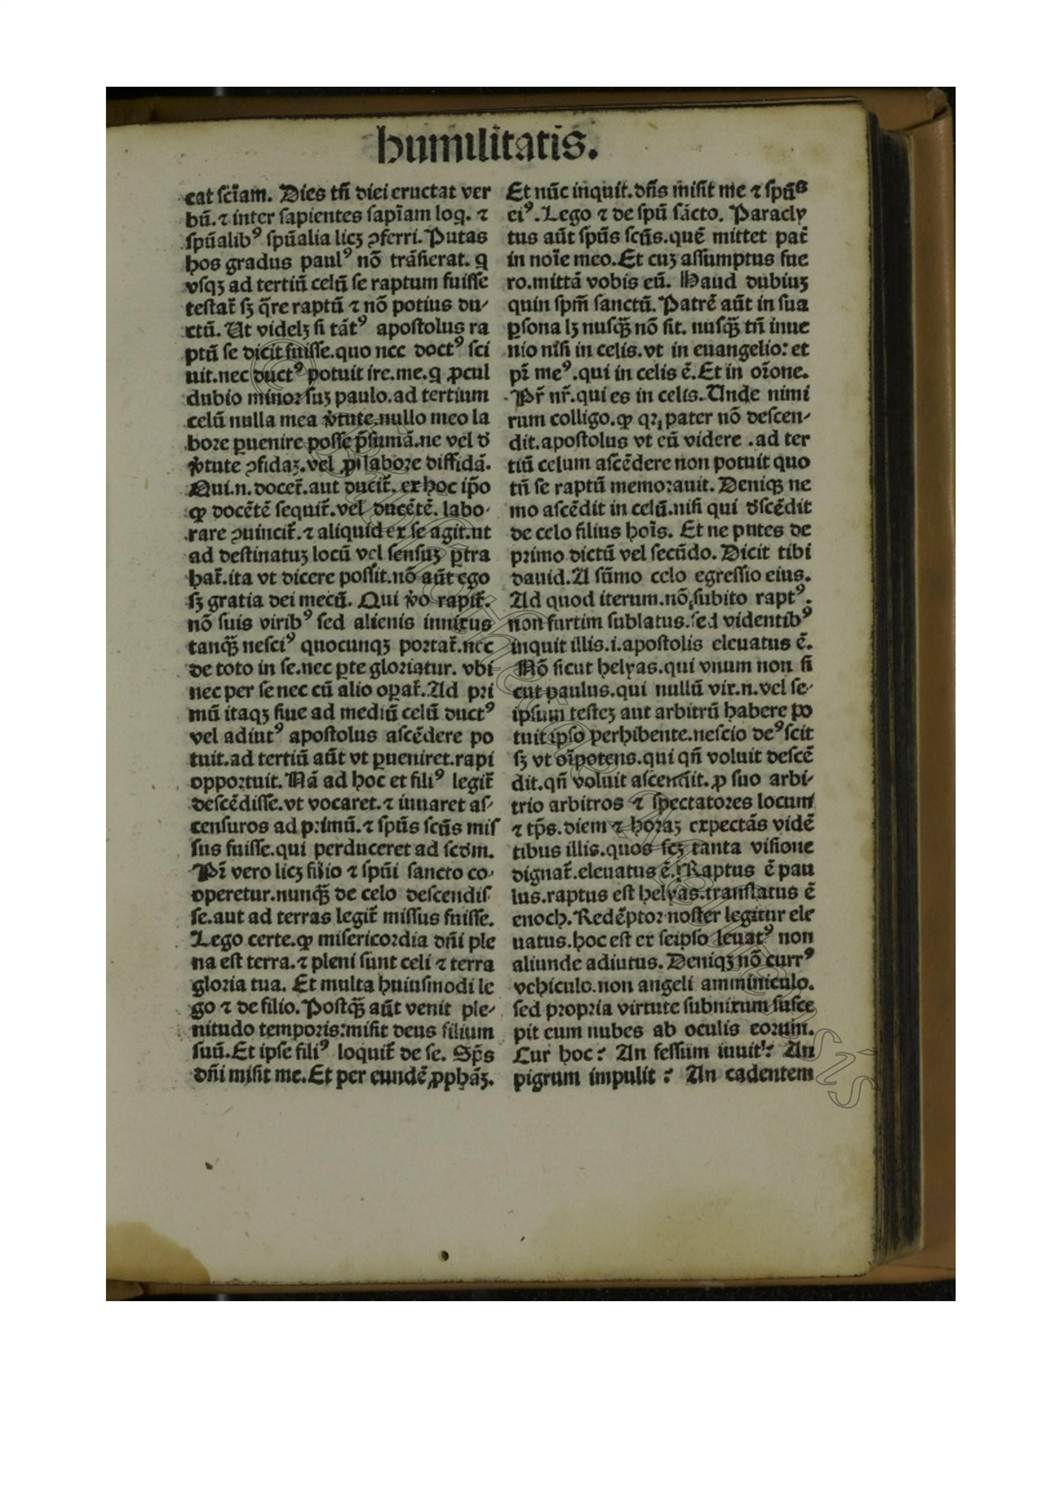 humilitatis.
cat scīam. Dies tñ diei eructat ver
bū. ⁊ inter sapientes sapīam loq. ⁊
spūalibꝰ spūalia licꝫ ꝯferri. Putas
hos gradus paulꝰ nō trāsierat. q
vsqꝫ ad tertiū celū se raptum fuisse
testat̄ sꝫ q̄re raptū ⁊ nō potius du-
ctū. Ut videlꝫ si tātꝰ apostolus ra
ptū se dicit fuisse. quo nec doctꝰ sci
uit. nec ductꝰ potuit ire. me. q ꝓcul
dubio minor suꝫ paulo. ad tertium
celū nulla mea v̓tute. nullo meo la
bore ꝑuenire posse p̄sumā. ne vel d̓
v̓tute ꝯfidaꝫ. vel ꝓ labore diffidā.
Qui. n. docet̄. aut ducit̄. ex hoc ip̄o
ꝙ docētē sequit̄. vel ducētē. labo-
rare ꝯuincit̄. ⁊ aliquid ex se agit. ut
ad destinatuꝫ locū vel sensuꝫ ꝑtra
hat̄. ita vt dicere possit. nō aūt ego
sꝫ gratia dei mecū. Qui v̓o rapit̄.
nō suis viribꝰ sed alienis innixus
tanqꝫ̄ nesciꝰ quocunqꝫ portat̄. nec
de toto in se. nec ꝑte gloriatur. vbi
nec per se nec cū alio oꝑat̄. Ad pri
mū itaqꝫ siue ad mediū celū ductꝰ
vel adiutꝰ apostolus ascēdere po
tuit. ad tertiū aūt vt ꝑueniret. rapi
opportuit. Nā ad hoc et filiꝰ legit̄
descēdisse. vt vocaret. ⁊ iuuaret as-
censuros ad primū. ⁊ spūs scūs mis
sus fuisse. qui perduceret ad scdm.
Pr̄ vero licꝫ filio ⁊ spūi sancto co-
operetur. nunqꝫ̄ de celo descendis
se. aut ad terras legit̄ missus fuisse.
Lego certe. ꝙ misericordia dn̄i ple
na est terra. ⁊ pleni sunt celi ⁊ terra
gloria tua. Et multa huiusmodi le
go ⁊ de filio. Postqꝫ̄ aūt venit ple-
nitudo temporis: misit deus filium
suū. Et ipse filiꝰ loquit̄ de se. Sp̄s
dn̄i misit me. Et per eundē ꝓphāꝫ.
Et nūc inquit. dn̄s misit me ⁊ spūs
eiꝰ. Lego ⁊ de spū sācto. Paracly
tus aūt spūs scūs. quē mittet pat̄
in noīe meo. Et cuꝫ assumptus fue
ro. mittā vobis eū. Haud dubiuꝫ
quin spm̄ sanctū. Patrē aūt in sua
ꝑsona lꝫ nusqꝫ̄ nō sit. nusqꝫ̄ tñ inue
nio nisi in celis. vt in euangelio: et
pr̄ meꝰ. qui in celis ē. Et in oīone.
Pr̄ nr̄. qui es in celis. Unde nimi
rum colligo. ꝙ qꝛ pater nō descen-
dit. apostolus vt eū videre. ad ter
tiū celum ascēdere non potuit quo
tñ se raptū memorauit. Deniqꝫ ne
mo ascēdit in celū. nisi qui d̓scēdit
de celo filius hoīs. Et ne putes de
primo dictū vel secūdo. Dicit tibi
dauid. A sūmo celo egressio eius.
Ad quod iterum. nō subito raptꝰ.
non furtim sublatus. sed videntibꝰ
inquit illis. i. apostolis eleuatus ē.
Nō sicut helyas. qui vnum non si
cut paulus. qui nullū vir. n. vel se-
ipsum testeꝫ aut arbitrū habere po
tuit ipso perhibente. nescio deꝰ scit
sꝫ vt oīpotens. qui qn̄ voluit descē
dit. qn̄ voluit ascendit. ꝓ suo arbi-
trio arbitros ⁊ spectatores locum
⁊ tp̄s. diem ⁊ horaꝫ expectās vidē
tibus illis. quos scꝫ tanta visione
dignat̄. eleuatus ē. Raptus ē pau
lus. raptus est helyas. translatus ē
enoch. Redēptor noster legitur ele
uatus. hoc est ex seipso leuatꝰ non
aliunde adiutus. Deniqꝫ nō currꝰ
vehiculo. non angeli amminiculo.
sed propria virtute subnixum susce
pit eum nubes ab oculis eorum.
Cur hoc? An fessum iuuit? An
pigrum impulit? An cadentem